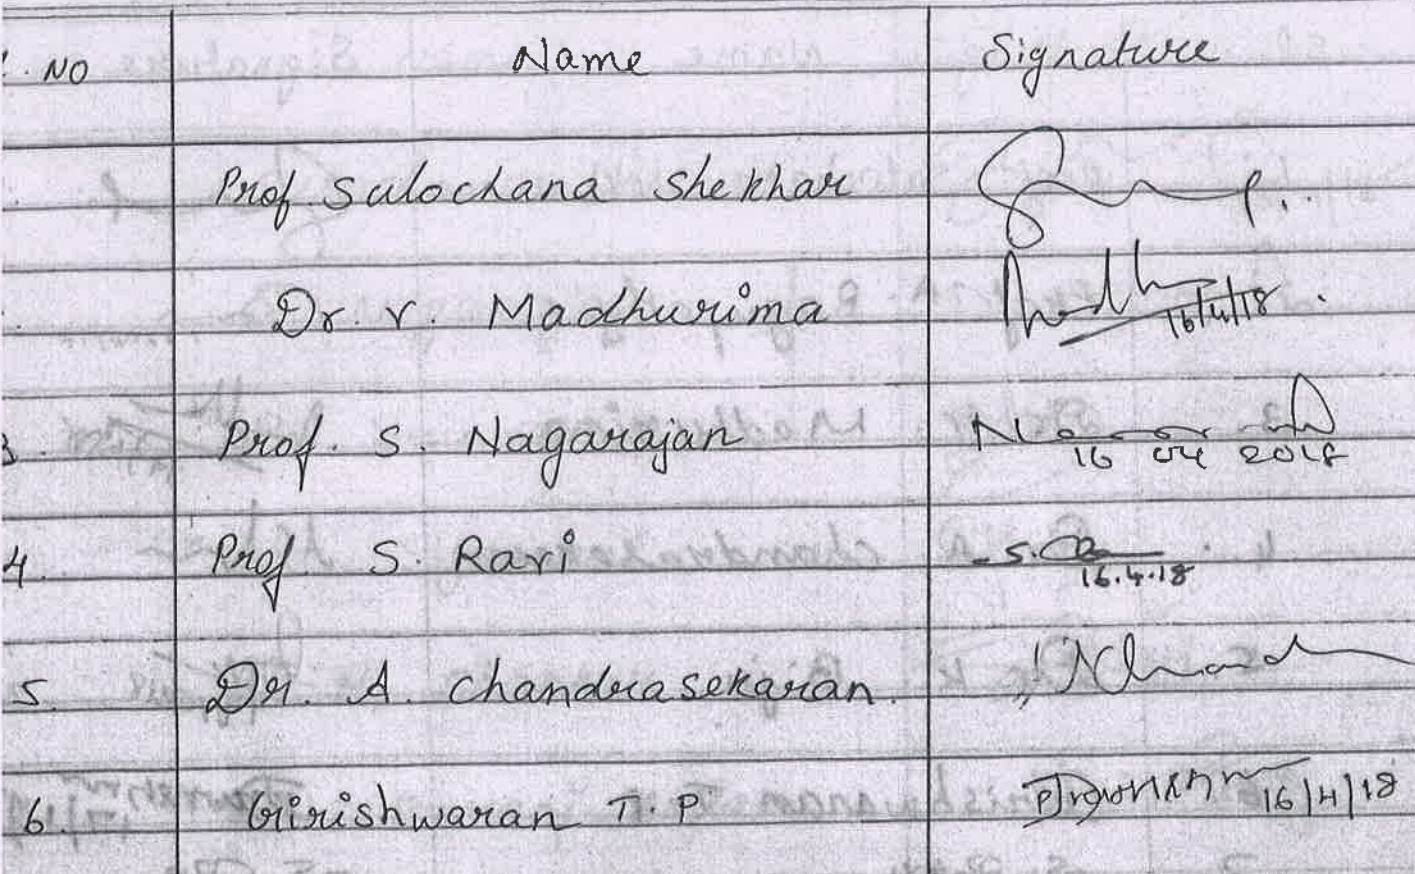 . NO Name Signature
Prof. Sulochana Shekhar
Dr. V. Madhurima 16/4/18
3. Prof. S. Nagarajan 16 04 2018
4. Prof S. Ravi S. 16.4.18
5. Dr. A. Chandrasekaran.
6. Girishwaran T. P 16/4/18